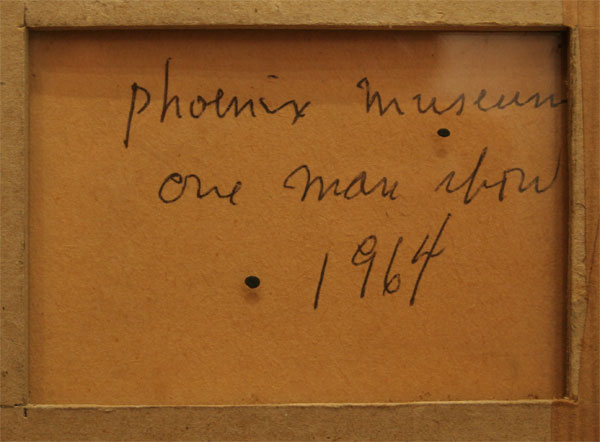 phoenix museum
one man show
1964